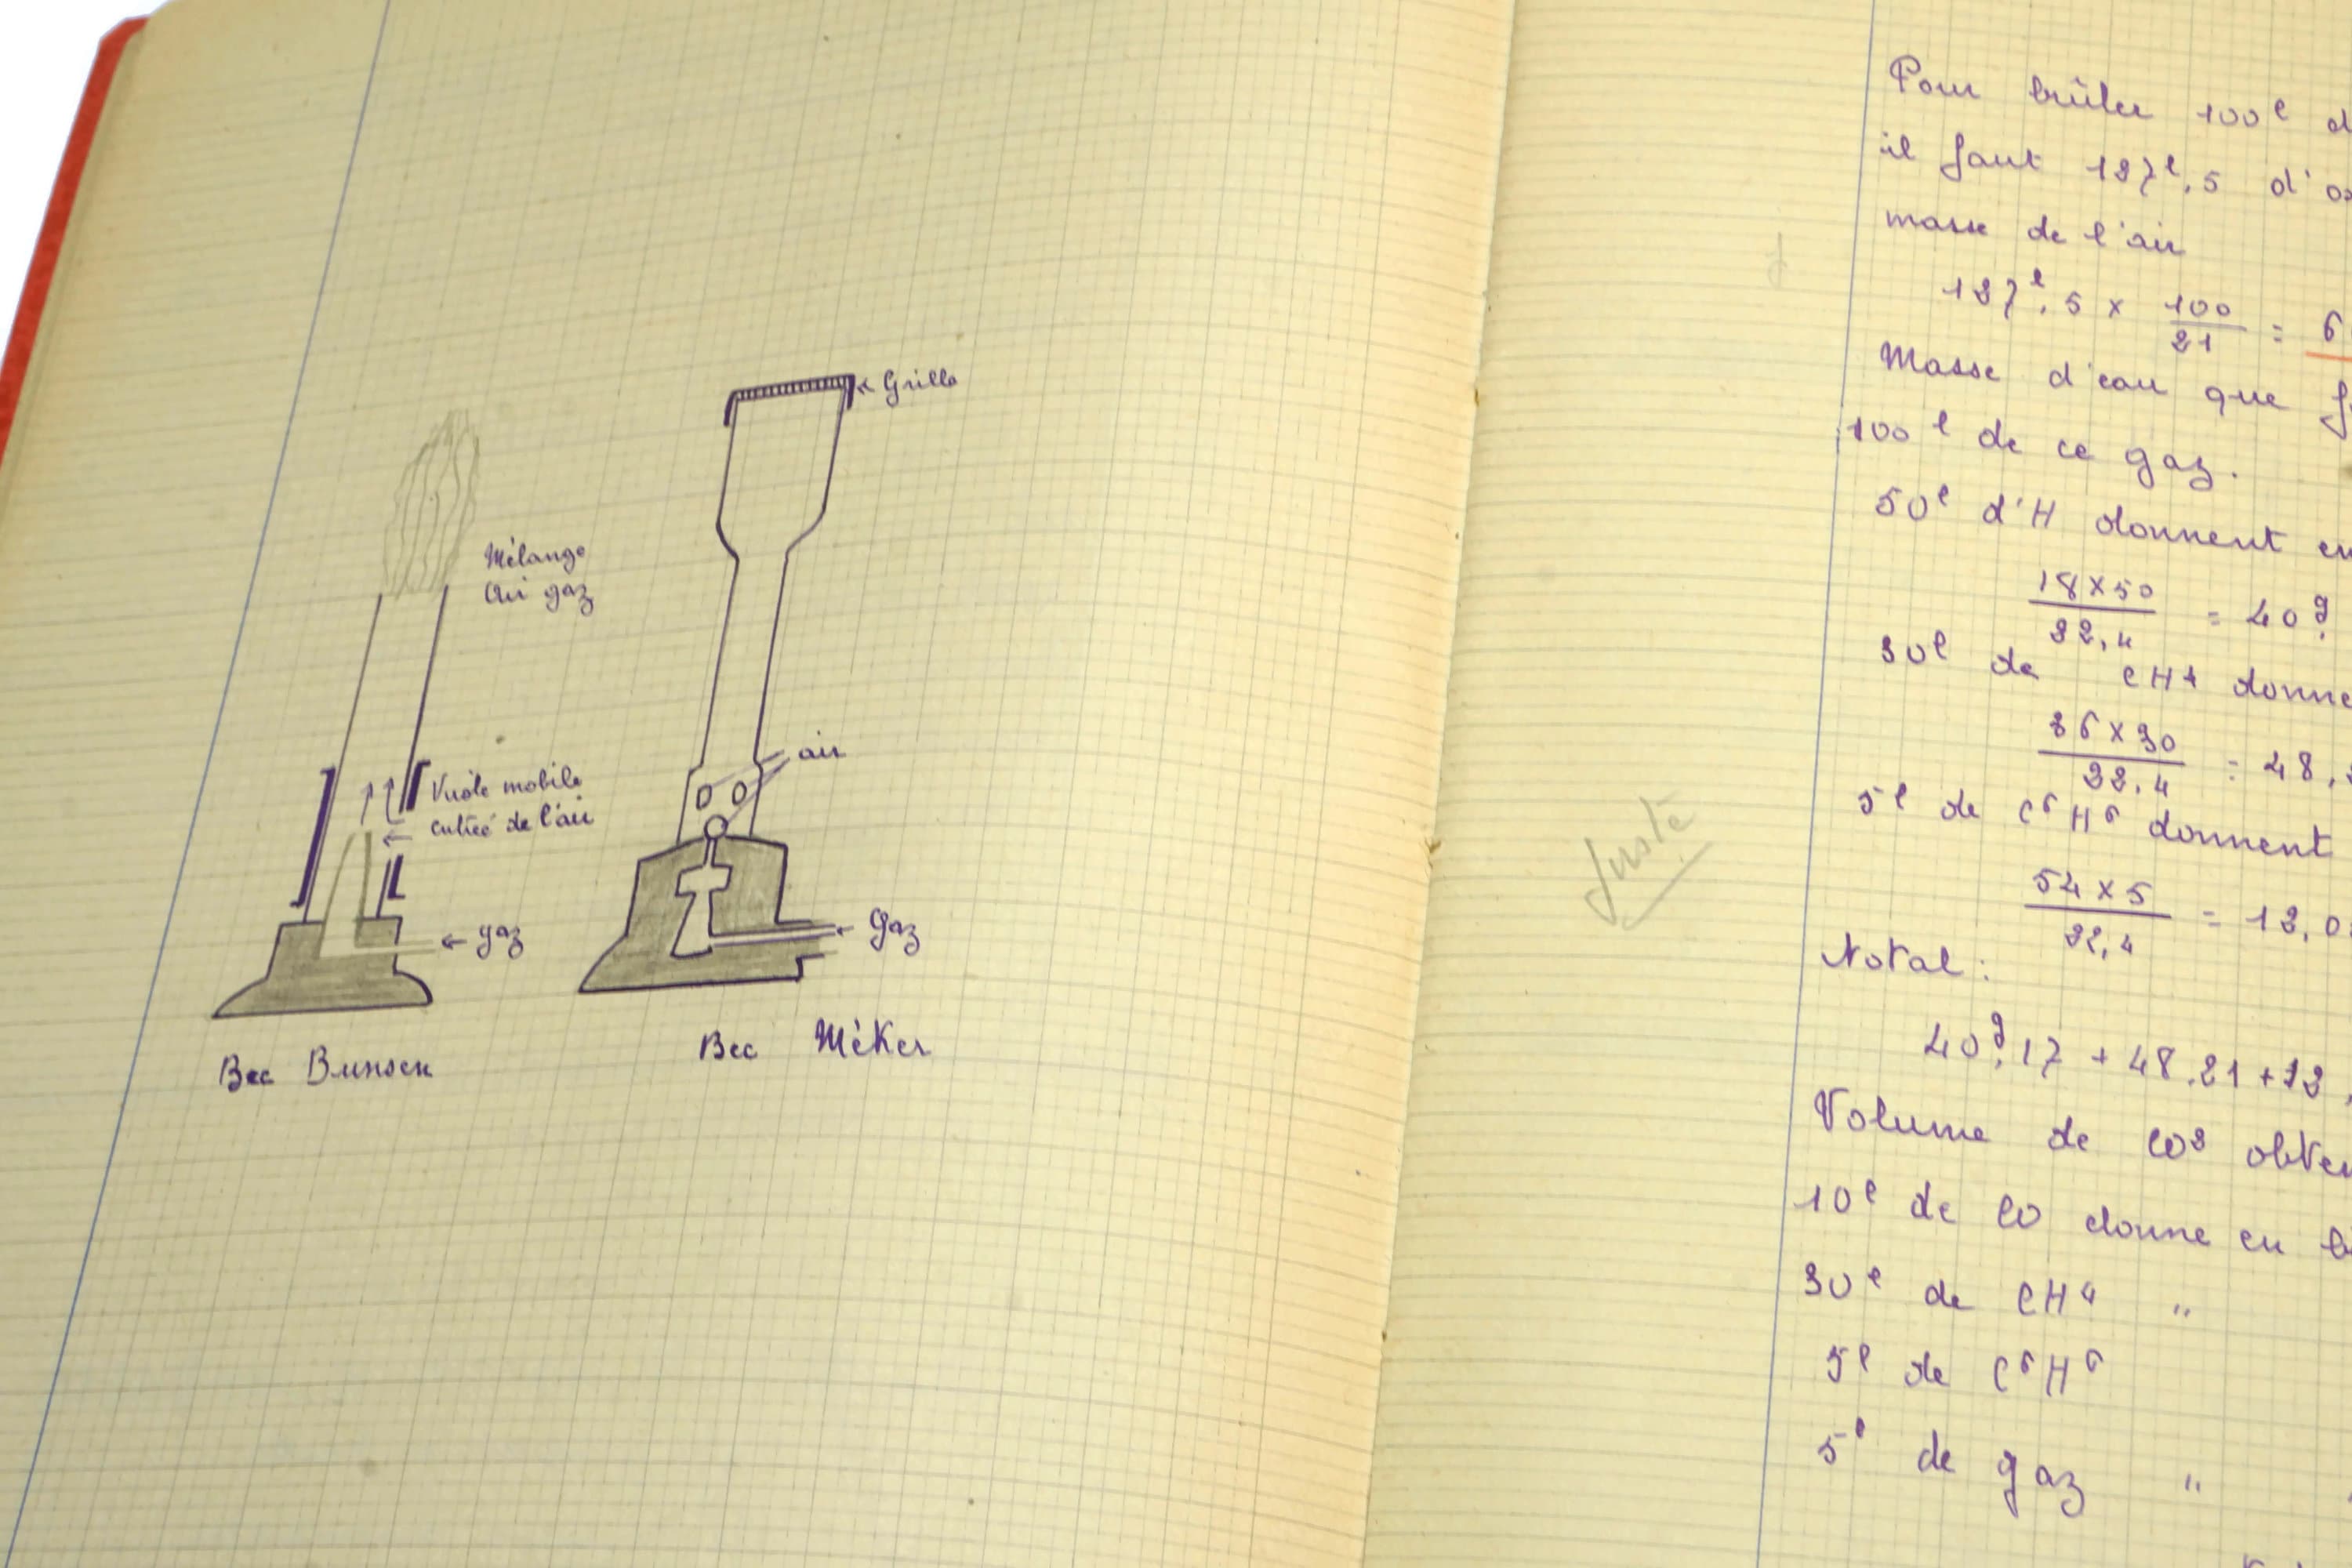 Grille
Mélange
Air gaz
air
mobile
entrée de l'air
gaz
Gaz
Bec Bunsen
Bec Méker
Juste
Pour brûler 100 l d
il faut 127 l,5 d'ox
masse de l'air
127 l,5 × 100/21 = 6
Masse d'eau que f
100 l de ce gaz.
50 l d'H donnent en
18×50/22,4 = 40 g,
30 l de CH4 donne
36×30/22,4 = 48,2
5 l de C6H6 donnent
54×5/22,4 = 12,0
Total :
40 g,17 + 48,21 + 12,
Volume de CO2 obten
10 l de CO donne en b
30 l de CH4 "
5 l de C6H6
5 l de gaz "